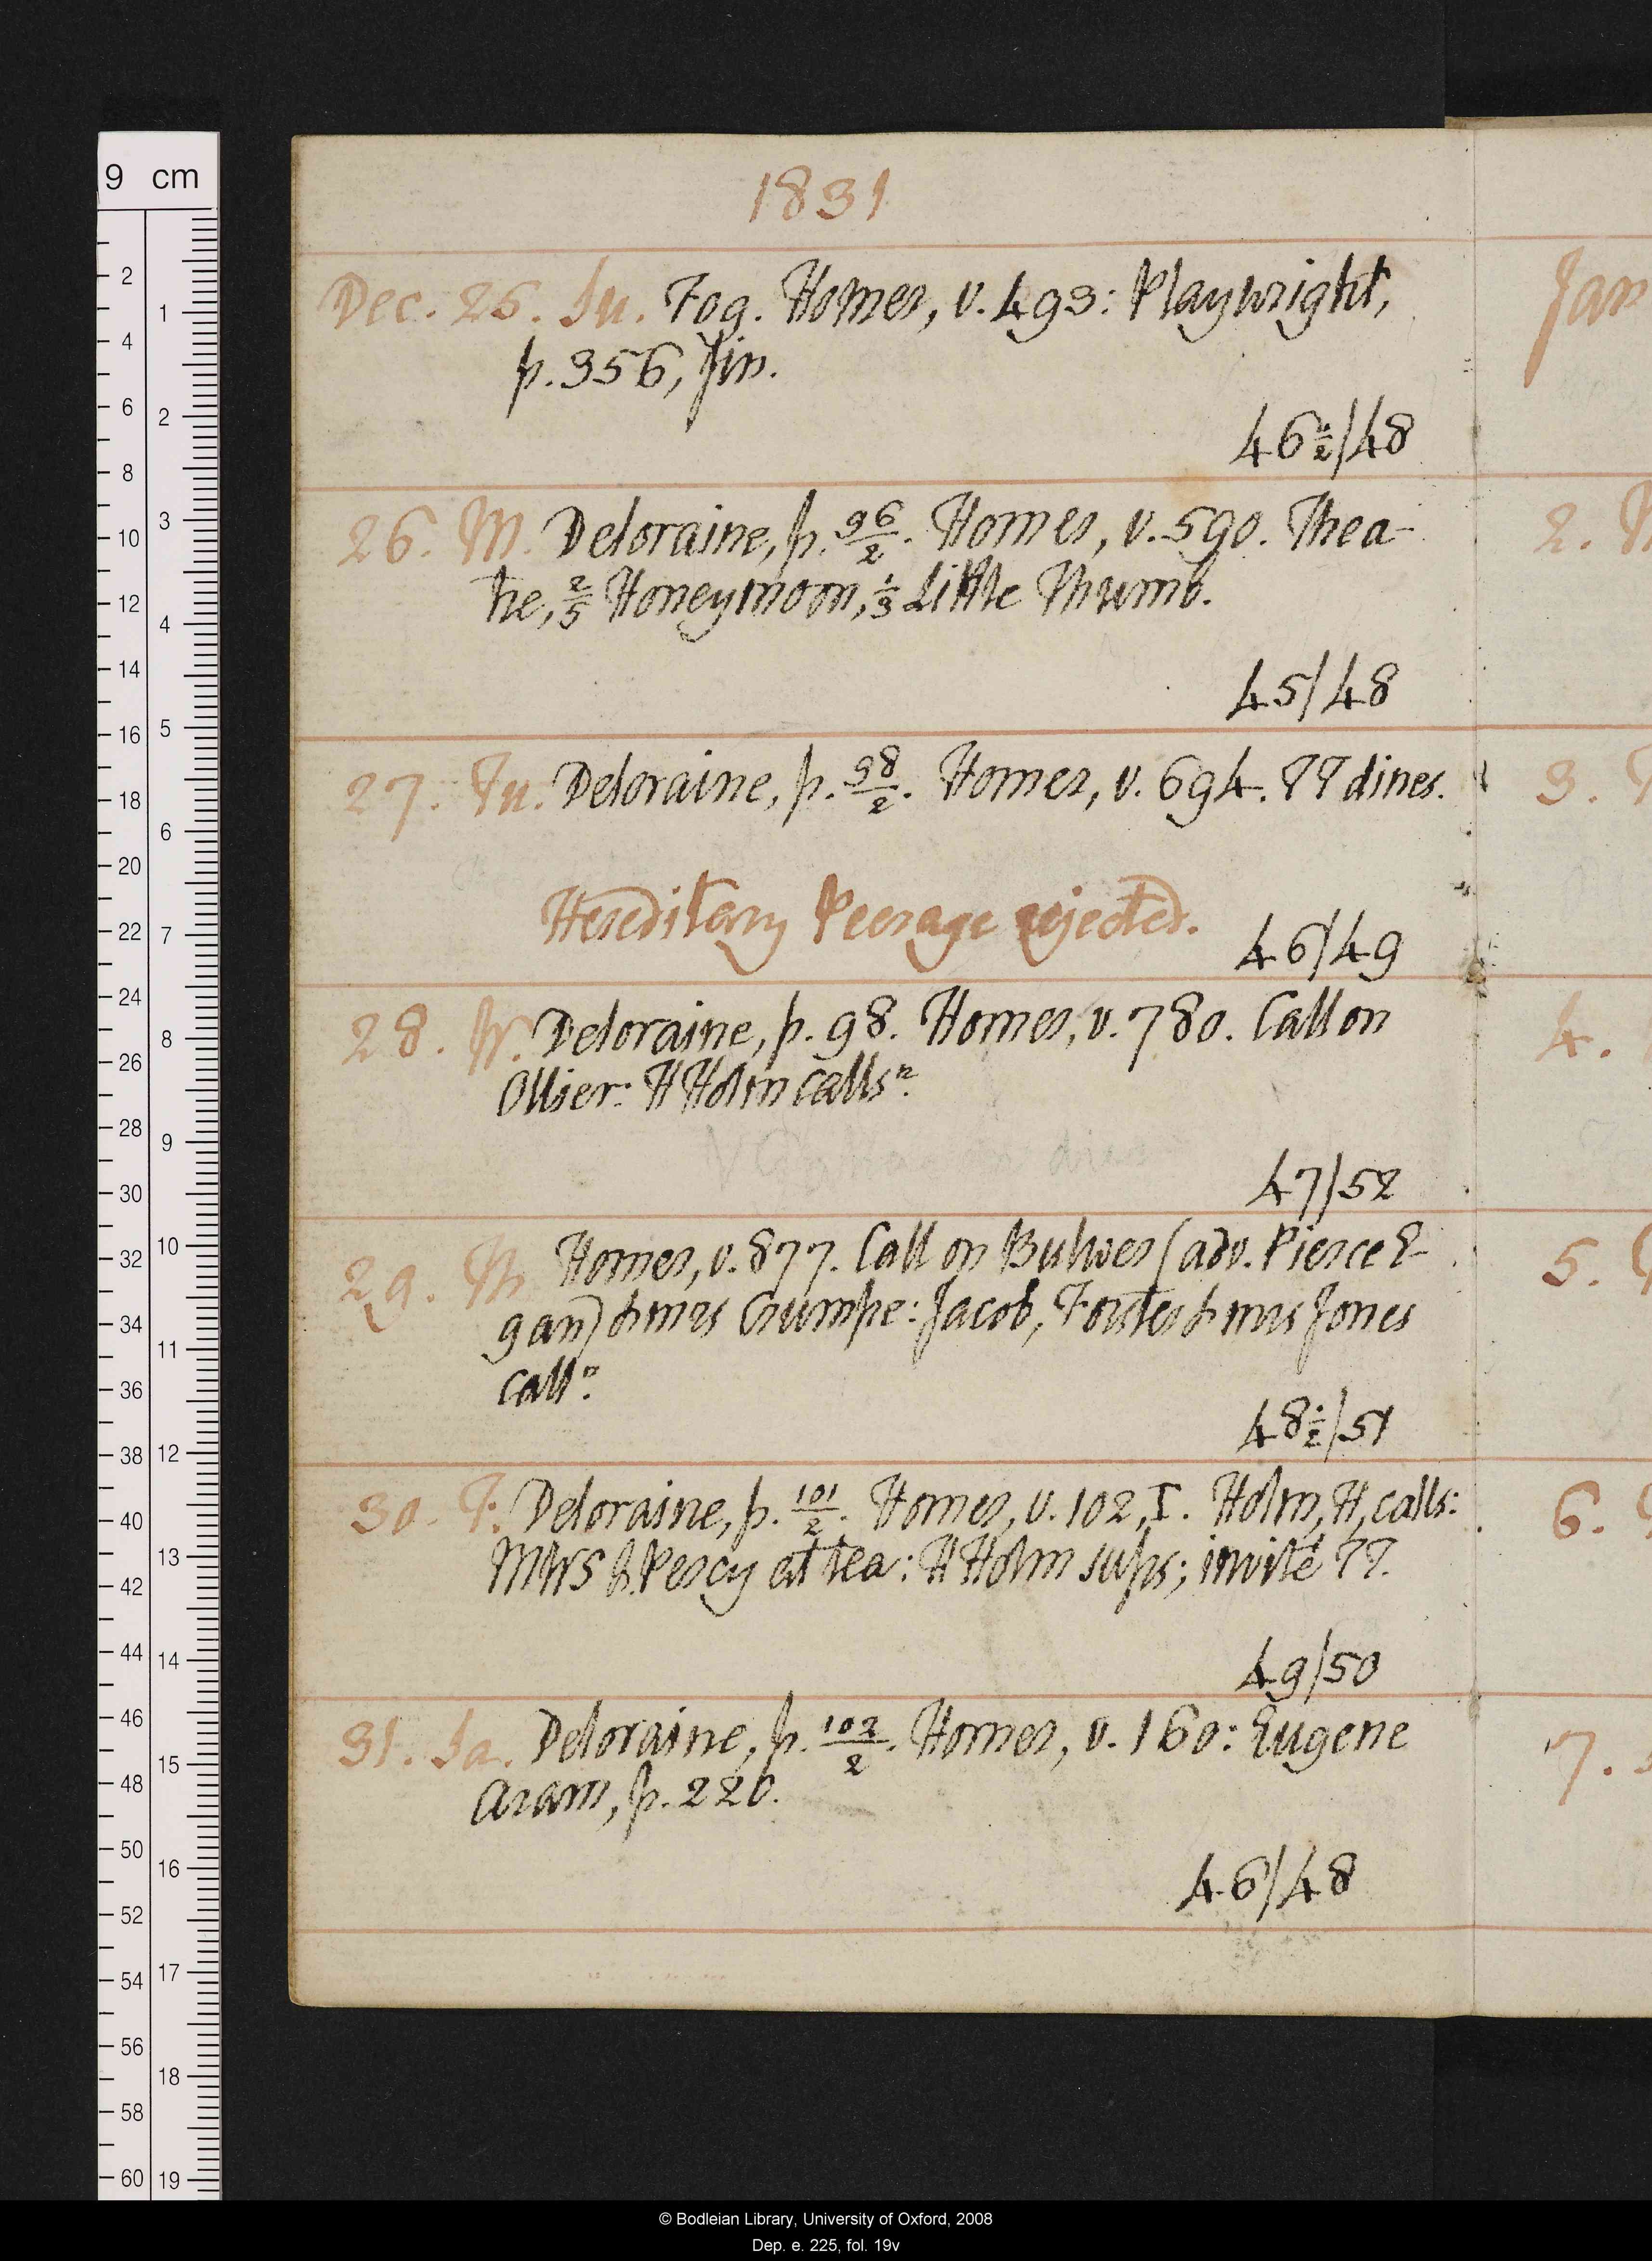 9 cm
1831
Dec. 25. Su. Fog. Homer, v. 493: Playwright,
p. 356, fin.
46½/48
26. M. Deloraine, p. 96/2. Homer, v. 590. Thea-
tre, 2/5 Honeymoon, 1/3 Little Thumb.
45/48
27. Tu. Deloraine, p. 98/2. Homer, v. 694. TT dines.
Hereditary Peerage rejected.
46/49
28. W. Deloraine, p. 98. Homer, v. 780. Call on
Ollier: H Holm calls n.
47/52
29. Th Homer, v. 877. Call on Bulwer (adv. Pierce E-
gan) & mrs Crumpe: Jacob, Forster & mrs Jones
call n.
48½/51
30. F. Deloraine, p. 101/2. Homer, v. 102, I. Holm, H, calls:
MWS & Percy at tea: H Holm sups; invité TT.
49/50
31. Sa. Deloraine, p. 102/2. Homer, v. 160: Eugene
Aram, p. 220.
46/48
Jan
2.
3.
4.
5.
6.
7.
© Bodleian Library, University of Oxford, 2008
Dep. e. 225, fol. 19v